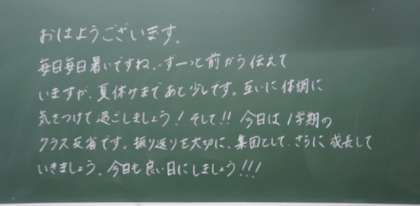 おはようございます。
毎日毎日暑いですね、ずーっと前から伝えて
いますが、夏休みまであと少しです。互いに体調に
気をつけて過ごしましょう！そして!! 今日は1学期の
クラス反省です。振り返りを大切に、集団として、さらに成長して
いきましょう。今日も良い日にしましょう!!!